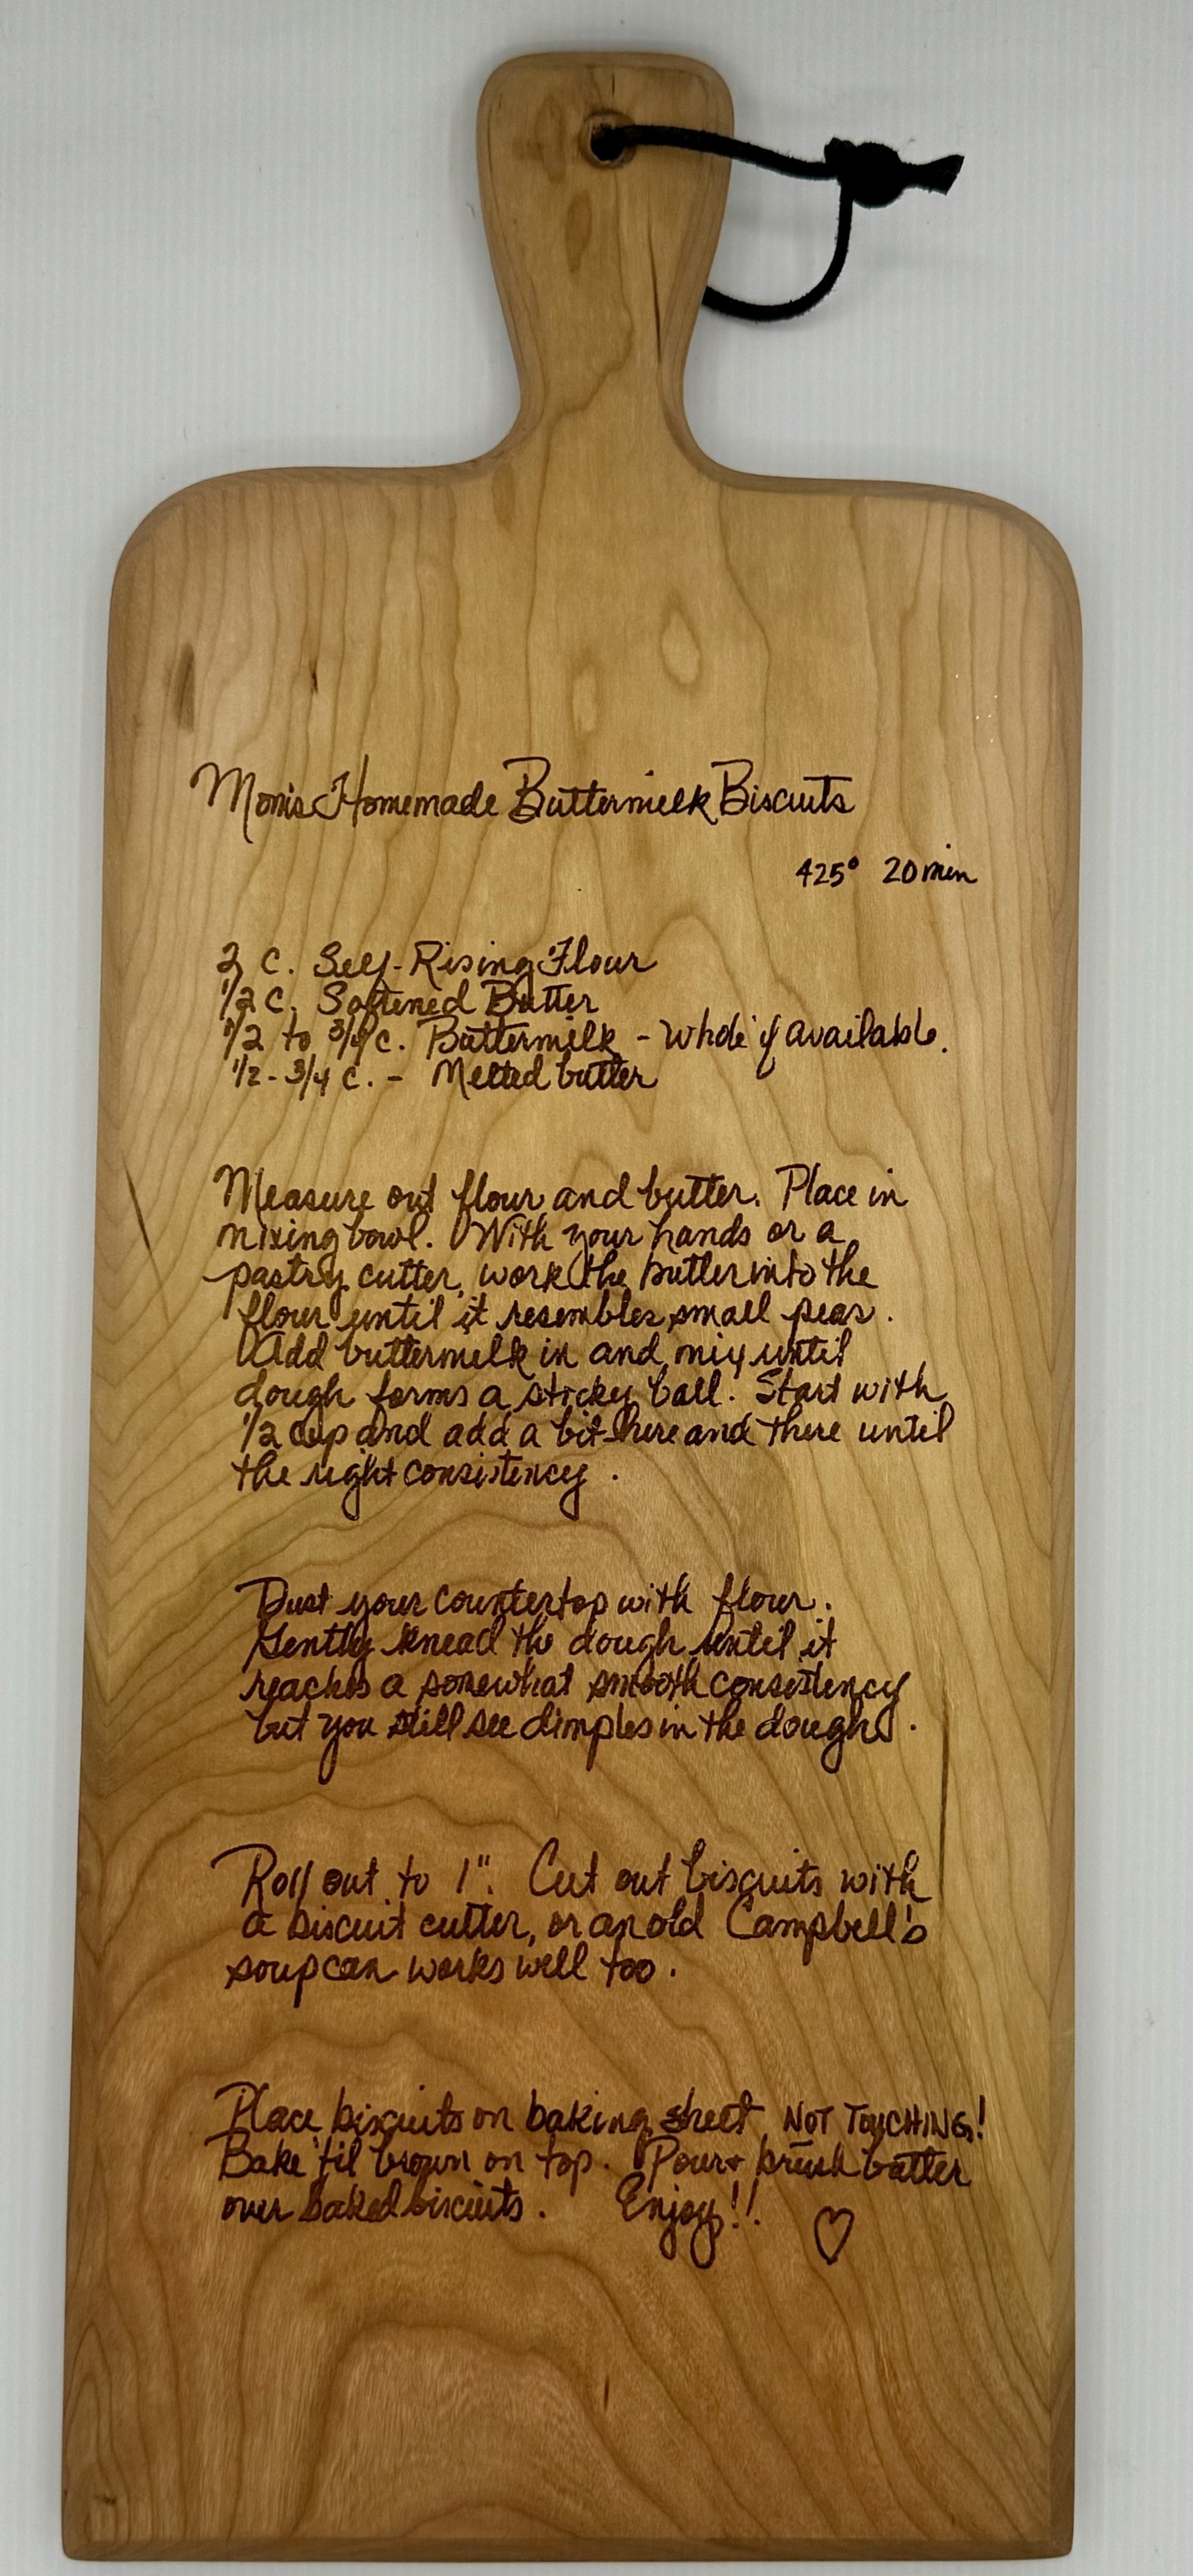 Mom's Homemade Buttermilk Biscuits
425° 20 min
2 C. Self-Rising Flour
1/2 C. Softened Butter
1/2 to 3/4 C. Buttermilk - whole if available.
1/2 - 3/4 C. - Melted butter
Measure out flour and butter. Place in
mixing bowl. With your hands or a
pastry cutter, work the butter into the
flour until it resembles small peas.
Add buttermilk in and mix until
dough forms a sticky ball. Start with
1/2 cup and add a bit here and there until
the right consistency.
Dust your countertop with flour.
Gently knead the dough until it
reaches a somewhat smooth consistency
but you still see dimples in the dough.
Roll out to 1". Cut out biscuits with
a biscuit cutter, or an old Campbell's
soup can works well too.
Place biscuits on baking sheet, NOT TOUCHING!
Bake 'til brown on top. Pour + brush butter
over baked biscuits. Enjoy!!